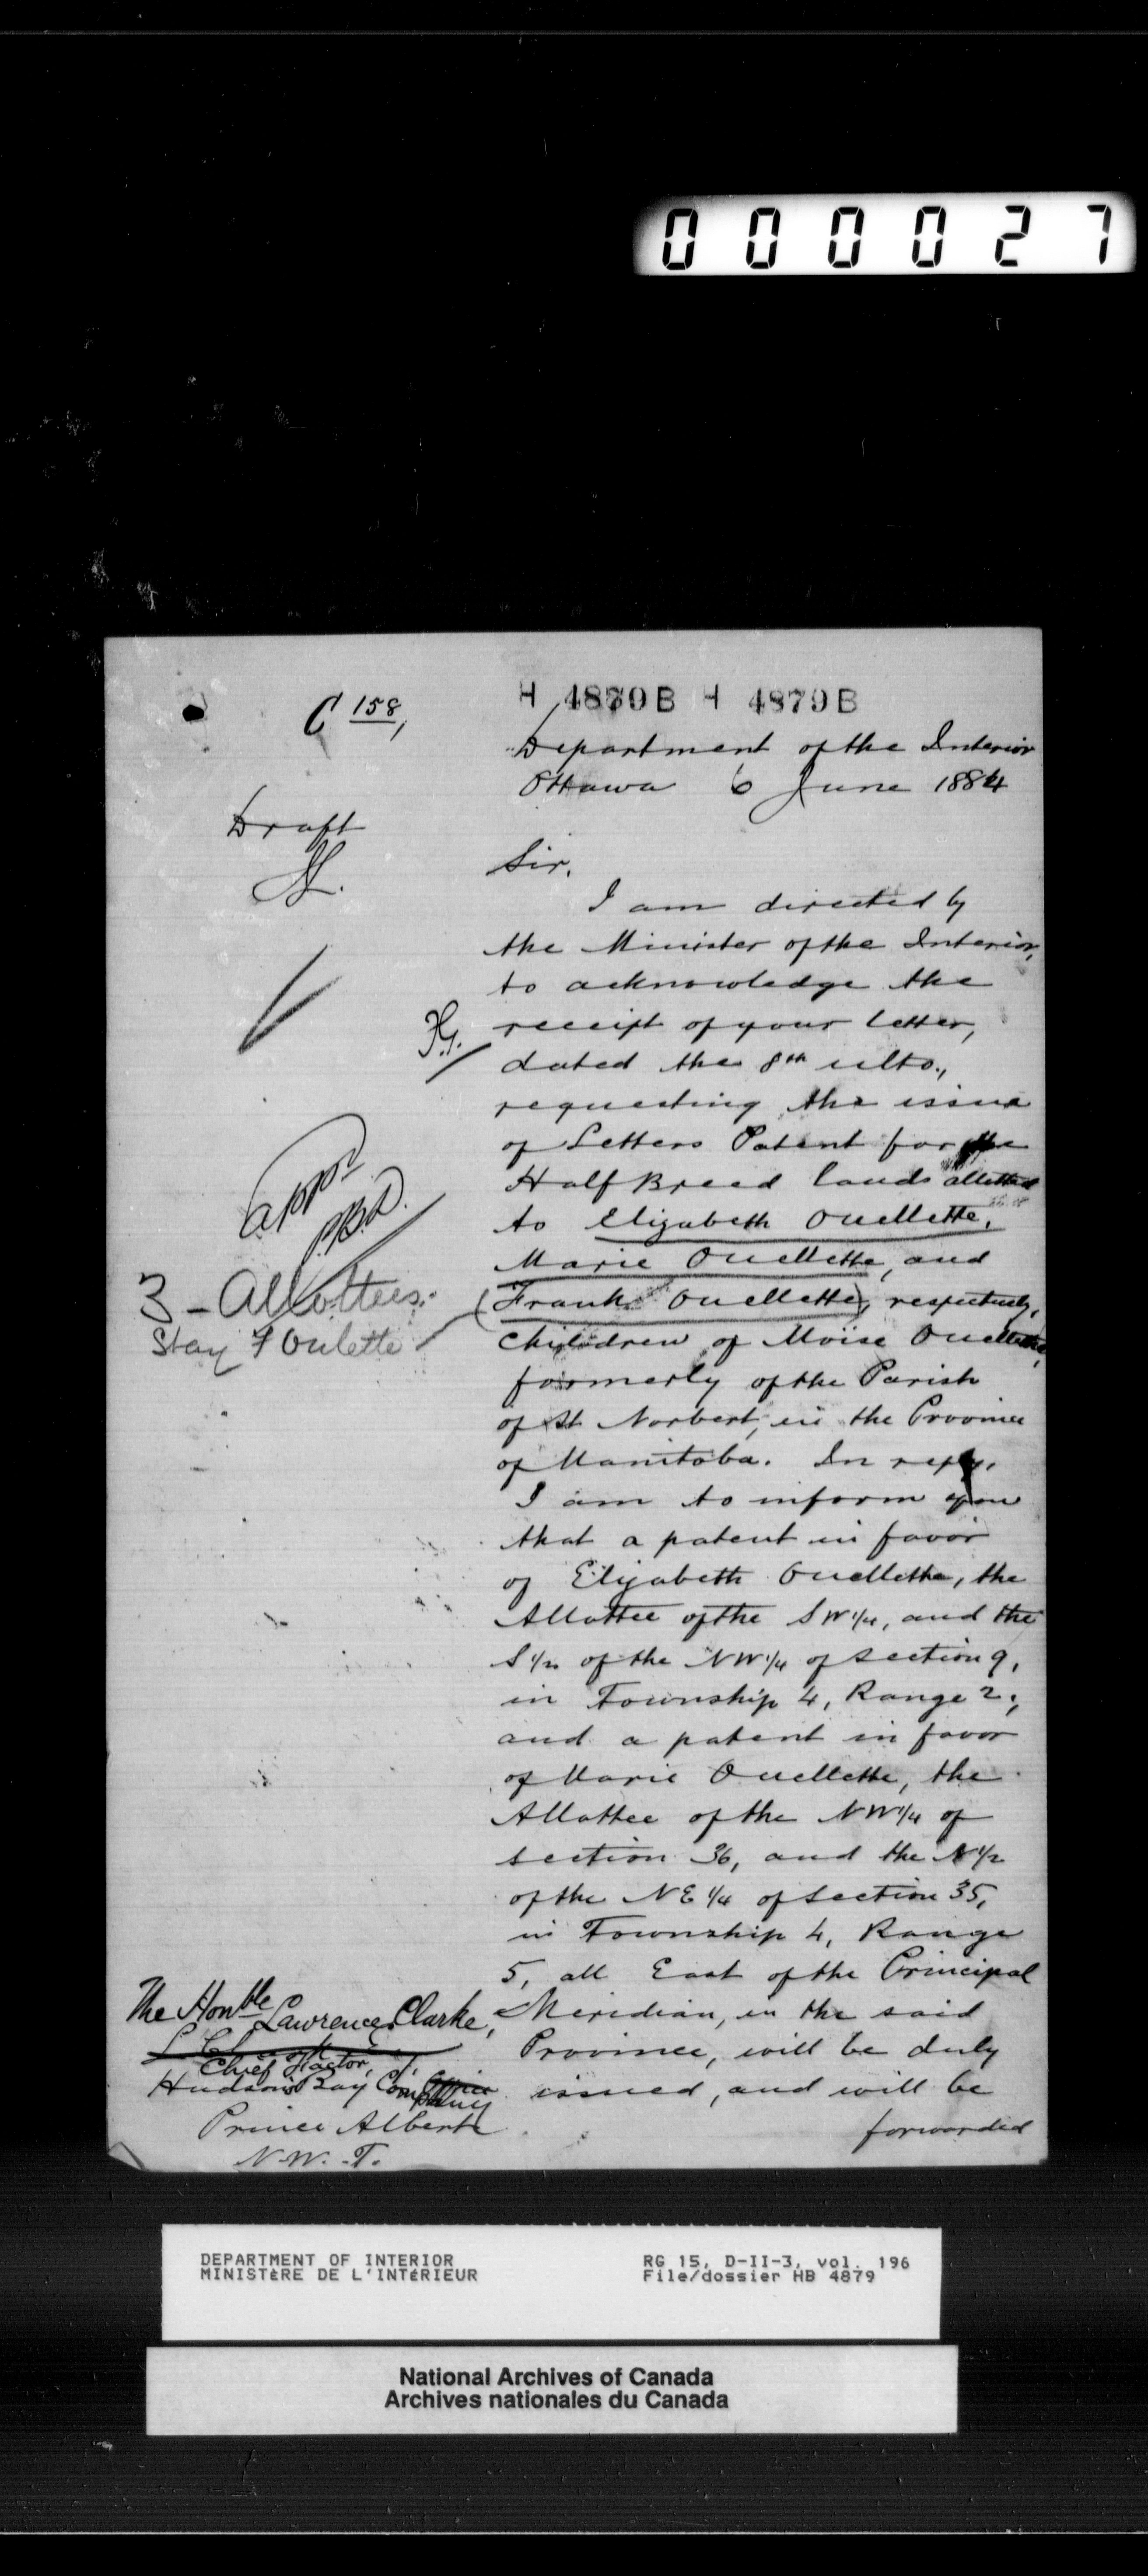 000027
H 4879B H 4879B
C 158,
Department of the Interior
Ottawa 6 June 1884
Draft
Sir,
I am directed by
the Minister of the Interior,
to acknowledge the
receipt of your letter,
dated the 8th ulto.,
requesting the issue
of Letters Patent for the
Half Breed lands allotted
to Elizabeth Ouellette,
Marie Ouellette, and
(Frank Ouellette), respectively,
children of Moïse Ouellette,
formerly of the Parish
of St Norbert, in the Province
of Manitoba. In reply,
I am to inform you
that a patent in favor
of Elizabeth Ouellette, the
Allottee of the SW 1/4, and the
S 1/2 of the NW 1/4 of section 9,
in Township 4, Range 2;
and a patent in favor
of Marie Ouellette, the
Allottee of the NW 1/4 of
section 36, and the N 1/2
of the NE 1/4 of section 35,
in Township 4, Range
5, all East of the Principal
Meridian, in the said
Province, will be duly
issued, and will be
forwarded
appd
3 - Allottees.
Stay F Oulette
The Honble
Lawrence Clarke,
Chief Factor,
Hudson's Bay Company
Prince Albert
N.W.T.
DEPARTMENT OF INTERIOR
MINISTÈRE DE L'INTÉRIEUR
RG 15, D-II-3, vol. 196
File/dossier HB 4879
National Archives of Canada
Archives nationales du Canada